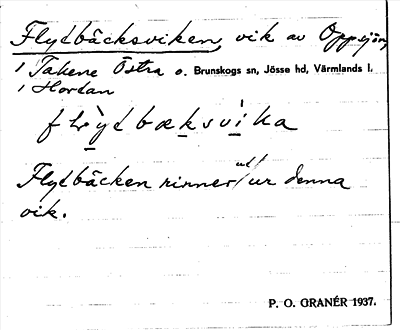 Flytbäcksviken, vik av Oppsjön,
1 Takene Östra o. Brunskogs sn, Jösse hd, Värmlands l.
1 Hordan
Flytbäcken rinner ut/ur denna
vik.
P. O. GRANÉR 1937.